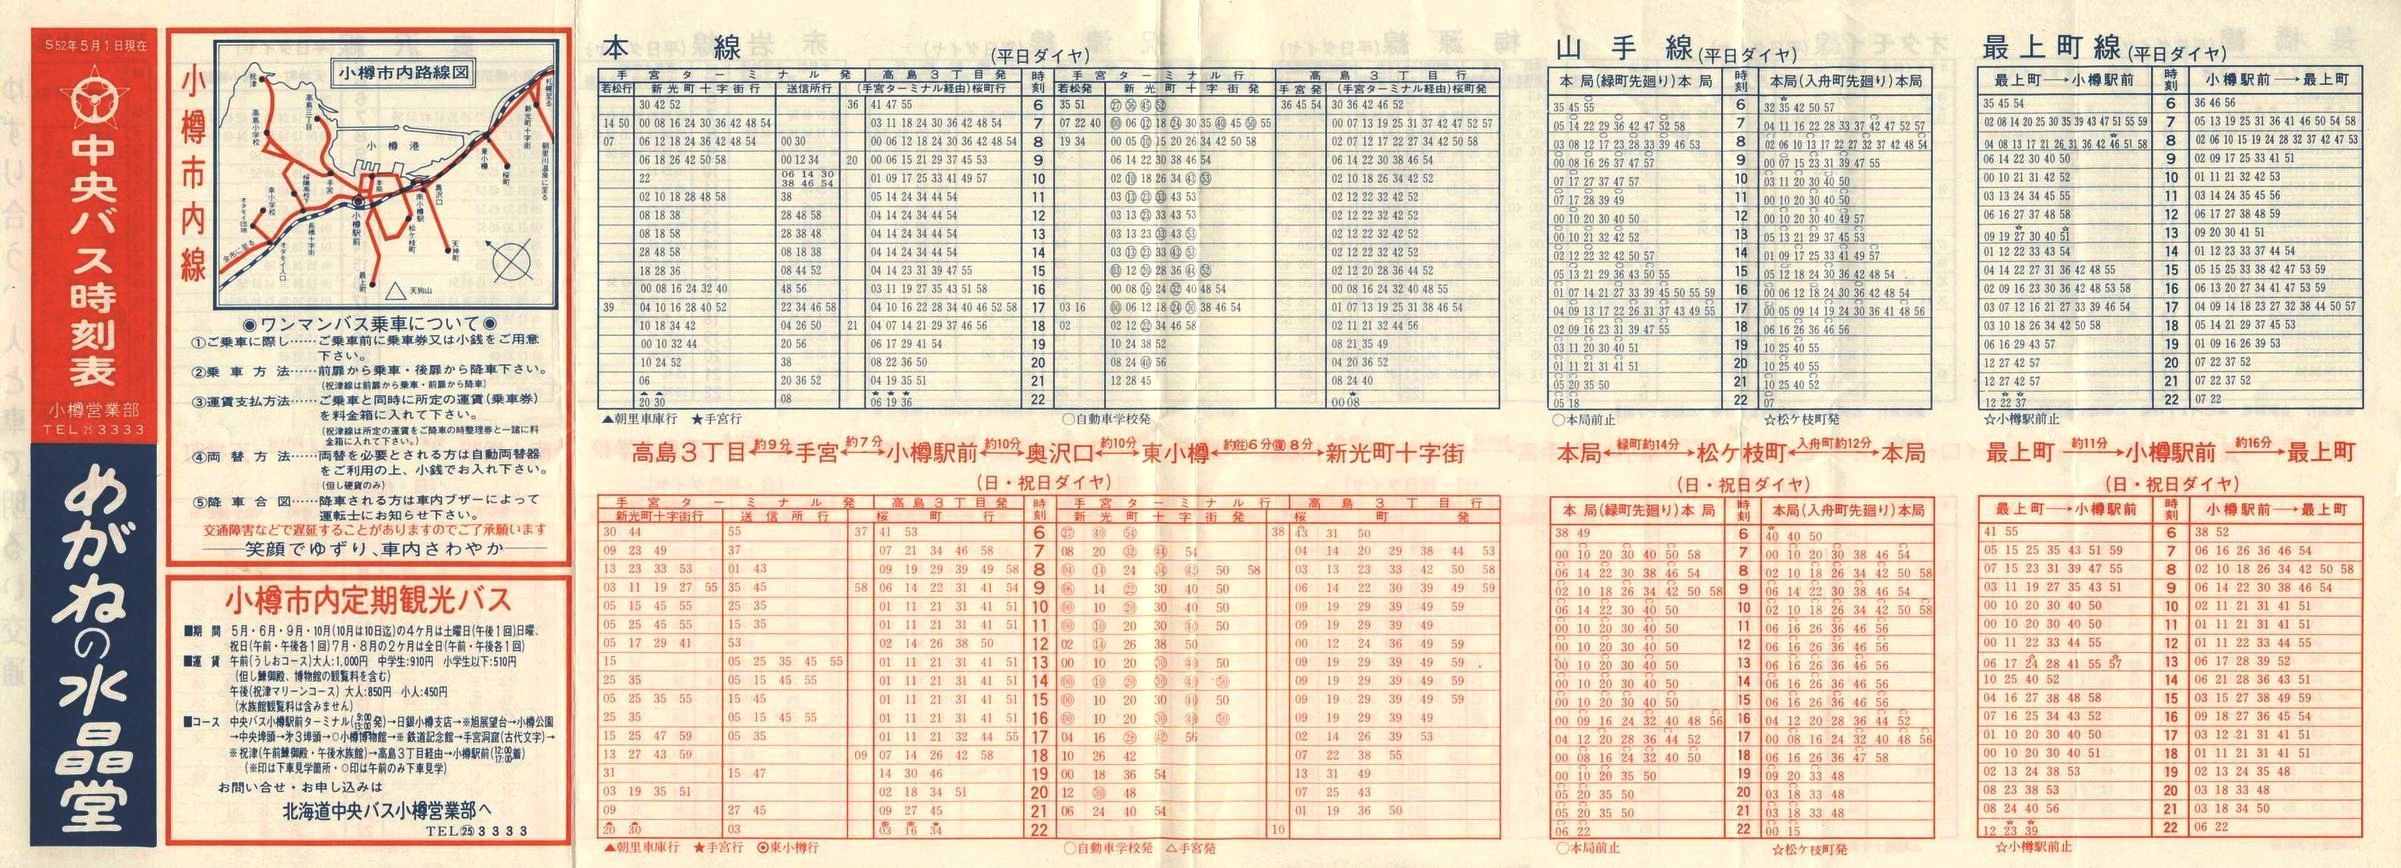 S52年5月1日現在
中央バス時刻表
小樽営業部
TEL㉕3333
めがねの水晶堂
小樽市内線
小樽市内路線図
祝津
高島三丁目
高島小学校
小樽港
手宮
本局
小樽駅前
奥沢口
南小樽駅
松ケ枝町
天神町
最上町
天狗山
東小樽
桜町
新光町十字街
札幌に至る
朝里川温泉に至る
幸小学校
長橋十字街
オタモイ入口
余市に至る
◉ワンマンバス乗車について◉
①ご乗車に際し……ご乗車前に乗車券又は小銭をご用意
下さい。
②乗車方法……前扉から乗車・後扉から降車下さい。
(祝津線は前扉から乗車・前扉から降車)
③運賃支払方法……ご乗車と同時に所定の運賃(乗車券)
を料金箱に入れて下さい。
(祝津線は所定の運賃をご降車の時整理券と一緒に料
金箱に入れて下さい。)
④両替方法……両替を必要とされる方は自動両替器
をご利用の上、小銭でお入れ下さい。
(但し硬貨のみ)
⑤降車合図……降車される方は車内ブザーによって
運転士にお知らせ下さい。
交通障害などで遅延することがありますのでご了承願います
笑顔でゆずり、車内さわやか
小樽市内定期観光バス
■期間 5月・6月・9月・10月(10月は10日迄)の4ケ月は土曜日(午後1回)日曜、
祝日(午前・午後各1回)7月・8月の2ケ月は全日(午前・午後各1回)
■運賃 午前(うしおコース)大人:1,000円 中学生:910円 小学生以下:510円
(但し鰊御殿、博物館の観覧料を含む)
午後(祝津マリーンコース) 大人:850円 小人:450円
(水族館観覧料は含みません)
■コース 中央バス小樽駅前ターミナル(9:00 13:00発)→日銀小樽支店→※旭展望台→小樽公園
→中央埠頭→才3埠頭→○小樽博物館→※鉄道記念館→手宮洞窟(古代文字)→
※祝津(午前鰊御殿・午後水族館)→高島3丁目経由→小樽駅前(12:00 17:00着)
(※印は下車見学箇所・○印は午前のみ下車見学)
お問い合せ・お申し込みは
北海道中央バス小樽営業部へ
TEL㉕3333
本線 (平日ダイヤ)
手宮ターミナル発 高島3丁目発 時刻 手宮ターミナル行 高島3丁目行
若松行 新光町十字街行 送信所行 (手宮ターミナル経由)桜町行 若松発 新光町十字街発 手宮発 (手宮ターミナル経由)桜町発
30 42 52 36 41 47 55 6 35 51 ㉗ ㊱ ㊺ 52 36 45 54 30 36 42 46 52
14 50 00 08 16 24 30 36 42 48 54 03 11 18 24 30 36 42 48 54 7 07 22 40 00 06 12 18 24 30 35 40 45 50 55 00 07 13 19 25 31 37 42 47 52 57
07 06 12 18 24 36 42 48 54 00 30 00 06 12 18 24 30 36 42 48 54 8 19 34 00 05 10 15 20 26 34 42 50 58 02 07 12 17 22 27 34 42 50 58
06 18 26 42 50 58 00 12 34 20 00 06 15 21 29 37 45 53 9 06 14 22 30 38 46 54 06 14 22 30 38 46 54
22 06 14 30 38 46 54 01 09 17 25 33 41 49 57 10 02 10 18 26 34 43 53 02 10 18 26 34 42 52
02 10 18 28 48 58 38 05 14 24 34 44 54 11 03 13 23 33 43 53 02 12 22 32 42 52
08 18 38 28 48 58 04 14 24 34 44 54 12 03 13 23 33 43 53 02 12 22 32 42 52
08 18 58 28 38 48 04 14 24 34 44 54 13 03 13 23 33 43 53 02 12 22 32 42 52
28 48 58 08 18 38 04 14 24 34 44 54 14 03 13 23 33 43 53 02 12 22 32 42 52
18 28 36 08 44 52 04 14 23 31 39 47 55 15 03 12 20 28 36 44 52 02 12 20 28 36 44 52
00 08 16 24 32 40 48 56 03 11 19 27 35 43 51 58 16 00 08 16 24 32 40 48 54 00 08 16 24 32 40 48 55
39 04 10 16 28 40 52 22 34 46 58 04 10 16 22 28 34 40 46 52 58 17 03 16 00 06 12 18 24 30 38 46 54 01 07 13 19 25 31 38 46 54
10 18 34 42 04 26 50 21 04 07 14 21 29 37 46 56 18 02 02 12 22 34 46 58 02 11 21 32 44 56
00 10 32 44 20 56 06 17 29 41 54 19 10 24 38 52 08 21 35 49
10 24 52 38 08 22 36 50 20 08 24 40 56 04 20 36 52
06 20 36 52 04 19 35 51 21 12 28 45 08 24 40
20 30 08 06 19 36 22 00 08
▲朝里車庫行 ★手宮行 ○自動車学校発
高島3丁目←約9分→手宮←約7分→小樽駅前←約10分→奥沢口←約10分→東小樽←約(往)6分(復)8分→新光町十字街
(日・祝日ダイヤ)
手宮ターミナル発 高島3丁目発 時刻 手宮ターミナル行 高島3丁目行
新光町十字街行 送信所行 桜町行 新光町十字街発 桜町発
30 44 55 37 41 53 6 27 40 54 38 43 31 50
09 23 49 37 07 21 34 46 58 7 08 20 32 44 54 04 14 20 29 38 44 53
13 23 33 53 01 43 09 19 29 39 49 58 8 04 14 24 34 42 50 58 03 13 23 33 42 50 58
03 11 19 27 55 35 45 58 06 14 22 31 41 54 9 06 14 22 30 40 50 06 14 22 30 39 49 59
05 15 45 55 25 35 01 11 21 31 41 51 10 00 10 20 30 40 50 09 19 29 39 49 59
05 25 45 55 15 35 01 11 21 31 41 51 11 00 10 20 30 40 50 09 19 29 39 49 59
05 17 29 41 53 02 14 26 38 50 12 02 14 26 38 50 00 12 24 36 49 59
15 05 25 35 45 55 01 11 21 31 41 51 13 00 10 20 30 40 50 09 19 29 39 49 59
25 35 05 15 45 55 01 11 21 31 41 51 14 00 10 20 30 40 50 09 19 29 39 49 59
05 25 35 55 15 45 01 11 21 31 41 51 15 00 10 20 30 40 50 09 19 29 39 49 59
25 35 05 15 45 55 01 11 21 31 41 51 16 00 10 20 30 40 50 09 19 29 39 49
15 25 47 59 05 35 01 11 21 32 44 55 17 04 16 28 42 56 02 14 26 39 53
13 27 43 59 09 07 14 26 42 58 18 10 26 42 07 22 38 55
31 15 47 14 30 46 19 00 18 36 54 13 31 49
03 19 35 51 02 18 34 51 20 12 30 48 07 25 43
09 27 45 09 27 45 21 06 24 40 54 01 19 36 50
20 30 03 03 16 34 22 10
▲朝里車庫行 ★手宮行 ◉東小樽行 ○自動車学校発 △手宮発
山手線 (平日ダイヤ)
本局(緑町先廻り)本局 時刻 本局(入舟町先廻り)本局
35 45 55 6 32 35 42 50 57
05 14 22 29 36 42 47 52 58 7 04 11 16 22 28 33 37 42 47 52 57
03 08 12 17 23 28 33 39 46 53 8 02 06 10 13 17 22 27 32 37 42 48 54
00 08 16 26 37 47 57 9 00 07 15 23 31 39 47 55
07 17 27 37 47 57 10 03 11 20 30 40 50
07 17 28 39 49 11 00 10 20 30 40 50
00 10 20 30 40 50 12 00 10 20 30 40 49 57
00 10 21 32 42 52 13 05 13 21 29 37 45 53
02 12 22 32 42 50 57 14 01 09 17 25 33 41 49 57
05 13 21 29 36 43 50 55 15 05 12 18 24 30 36 42 48 54
01 07 14 21 27 33 39 45 50 55 59 16 00 06 12 18 24 30 36 42 48 54
04 09 13 17 22 26 31 37 43 49 55 17 00 05 09 14 19 24 30 36 41 48 56
02 09 16 23 31 39 47 55 18 06 16 26 36 46 56
03 11 20 30 40 51 19 10 25 40 55
01 11 21 31 41 51 20 10 25 40 55
05 20 35 50 21 10 25 40 52
05 18 22 07
○本局前止 ☆松ケ枝町発
本局←緑町約14分→松ケ枝町←入舟町約12分→本局
(日・祝日ダイヤ)
本局(緑町先廻り)本局 時刻 本局(入舟町先廻り)本局
38 49 6 40 40 50
00 10 20 30 40 50 58 7 00 10 20 30 38 46 54
06 14 22 30 38 46 54 8 02 10 18 26 34 42 50 58
02 10 18 26 34 42 50 58 9 06 14 22 30 38 46 54
06 14 22 30 40 50 10 02 10 18 26 34 42 50 58
00 10 20 30 40 50 11 06 16 26 36 46 56
00 10 20 30 40 50 12 06 16 26 36 46 56
00 10 20 30 40 50 13 06 16 26 36 46 56
00 10 20 30 40 50 14 06 16 26 36 46 56
00 10 20 30 40 50 15 06 16 26 36 46 56
00 09 16 24 32 40 48 56 16 04 12 20 28 36 44 52
04 12 20 28 36 44 52 17 00 08 16 24 32 40 48 56
00 08 16 24 32 40 50 18 06 16 26 36 47 58
00 10 20 35 50 19 09 20 33 48
05 20 35 50 20 03 18 33 48
05 20 35 50 21 03 18 33 48
06 22 22 00 15
○本局前止 ☆松ケ枝町発
最上町線 (平日ダイヤ)
最上町→小樽駅前 時刻 小樽駅前→最上町
35 45 54 6 36 46 56
02 08 14 20 25 30 35 39 43 47 51 55 59 7 05 13 19 25 31 36 41 46 50 54 58
04 08 13 17 21 26 31 36 42 46 51 58 8 02 06 10 15 19 24 28 32 37 42 47 53
06 14 22 30 40 50 9 02 09 17 25 33 41 51
00 10 21 31 42 52 10 01 11 21 32 42 53
03 13 24 34 45 55 11 03 14 24 35 45 56
06 16 27 37 48 58 12 06 17 27 38 48 59
09 19 27 30 40 51 13 09 20 30 41 51
01 12 22 33 43 54 14 01 12 23 33 37 44 54
04 14 22 27 31 36 42 48 55 15 05 15 25 33 38 42 47 53 59
02 09 16 23 30 36 42 48 53 58 16 06 13 20 27 34 41 47 53 59
03 07 12 16 21 27 33 39 46 54 17 04 09 14 18 23 27 32 38 44 50 57
03 10 18 26 34 42 50 58 18 05 14 21 29 37 45 53
06 16 29 43 57 19 01 09 16 26 39 53
12 27 42 57 20 07 22 37 52
12 27 42 57 21 07 22 37 52
12 22 37 22 07 22
☆小樽駅前止
最上町→約11分→小樽駅前→約16分→最上町
(日・祝日ダイヤ)
最上町→小樽駅前 時刻 小樽駅前→最上町
41 55 6 38 52
05 15 25 35 43 51 59 7 06 16 26 36 46 54
07 15 23 31 39 47 55 8 02 10 18 26 34 42 50 58
03 11 19 27 35 43 51 9 06 14 22 30 38 46 54
00 10 20 30 40 50 10 02 11 21 31 41 51
00 10 20 30 40 50 11 01 11 21 31 41 51
00 11 22 33 44 55 12 01 11 22 33 44 55
06 17 24 28 41 55 57 13 06 17 28 39 52
10 25 40 52 14 06 21 28 36 43 51
04 16 27 38 48 58 15 03 15 27 38 49 59
07 16 25 34 43 52 16 09 18 27 36 45 54
01 10 20 30 40 50 17 03 12 21 31 41 51
00 10 20 30 40 51 18 01 11 21 31 41 51
02 13 24 38 53 19 02 13 24 35 48
08 23 38 53 20 03 18 33 48
08 24 40 56 21 03 18 34 50
12 23 39 22 06 22
☆小樽駅前止